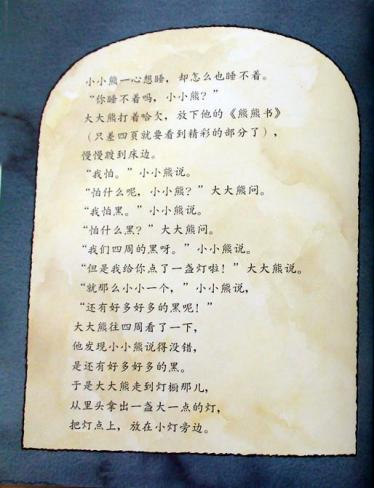 小小熊一心想睡，却怎么也睡不着。
“你睡不着吗，小小熊？”
大大熊打着哈欠，放下他的《熊熊书》
（只差四页就要看到精彩的部分了），
慢慢踱到床边。
“我怕。”小小熊说。
“怕什么呢，小小熊？”大大熊问。
“我怕黑。”小小熊说。
“怕什么黑？”大大熊问。
“我们四周的黑呀。”小小熊说。
“但是我给你点了一盏灯啦！”大大熊说。
“就那么小小一个，”小小熊说，
“还有好多好多的黑呢！”
大大熊往四周看了一下，
他发现小小熊说得没错，
是还有好多好多的黑。
于是大大熊走到灯橱那儿，
从里头拿出一盏大一点的灯，
把灯点上，放在小灯旁边。